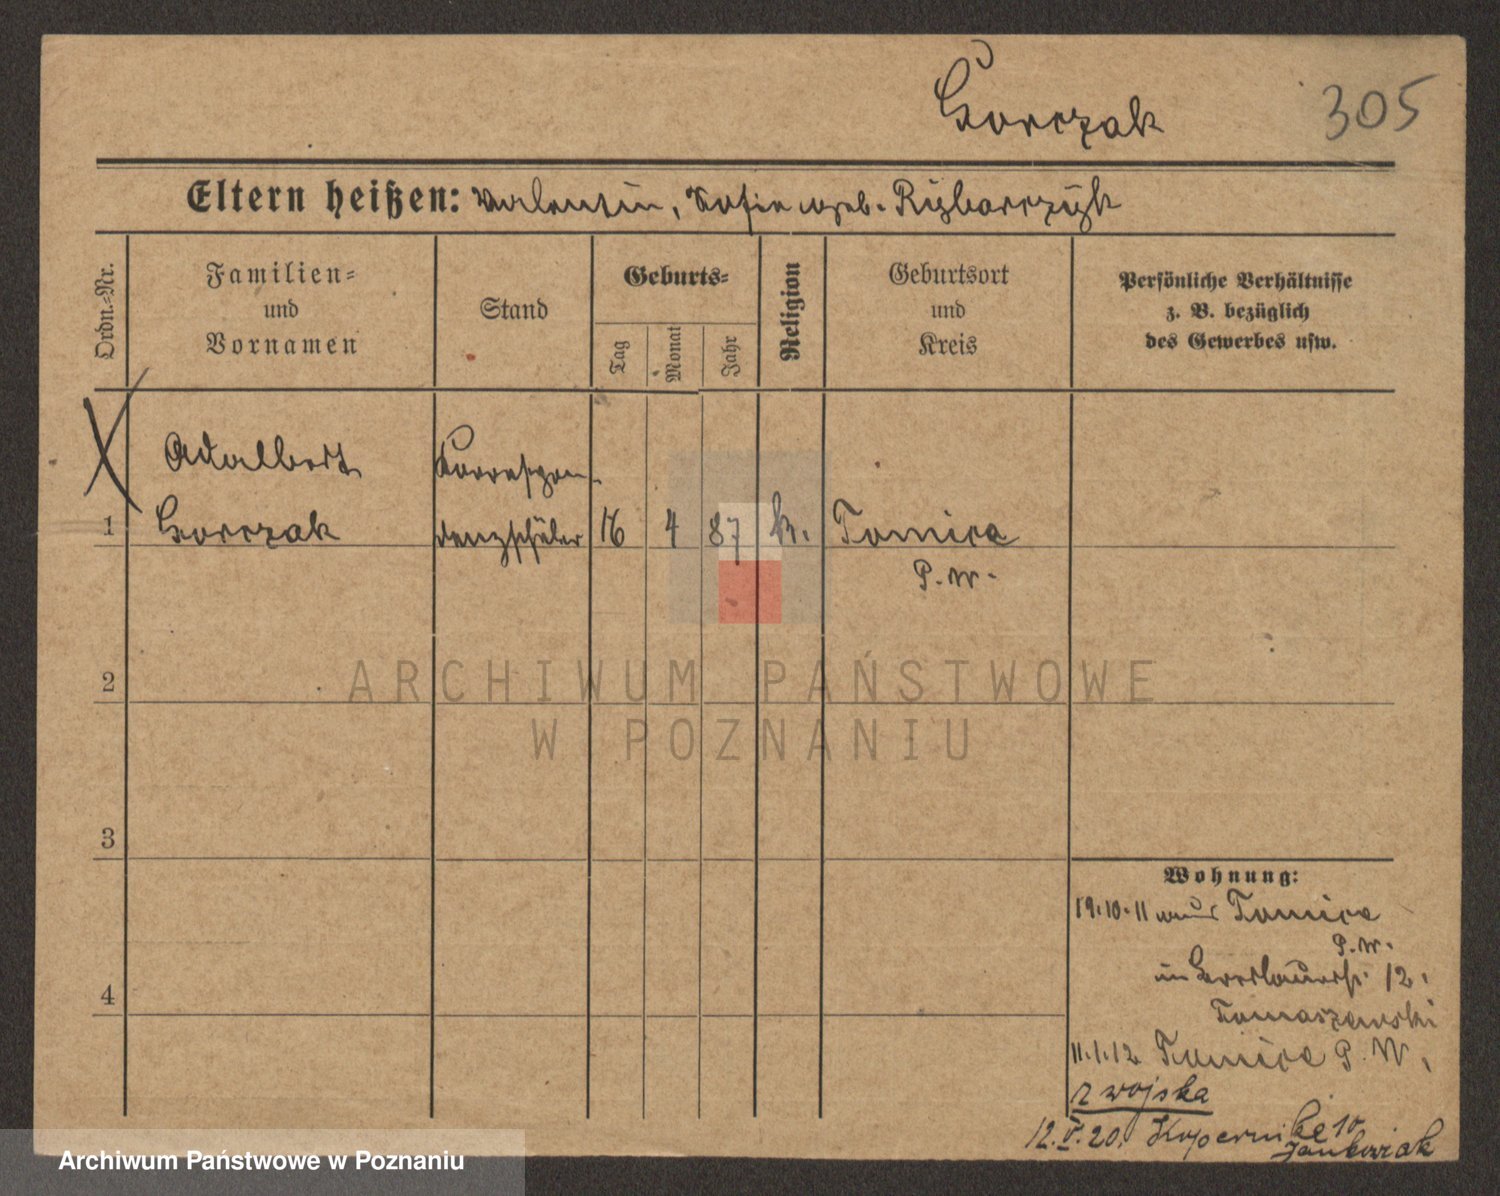 Gorczak 305
Eltern heißen: Valentin, Sofie geb. Rÿbarczÿk
Ordn.=Nr.
Familien=
und
Vornamen
Stand
Geburts=
Tag
Monat
Jahr
Religion
Geburtsort
und
Kreis
Persönliche Verhältnisse
z. B. bezüglich
des Gewerbes usw.
Adalbert Korrespon-
1 Gorczak denzschüler 16 4 87 k. Tomice
P. W.
2
3
4
Wohnung:
19.10.11 Tomice
P. W.
12.
Tomaszewski
11.1.12 Tomice P. W.
z wojska
12.V.20. Kopernika 10
Jankowiak
ARCHIWUM PAŃSTWOWE
W POZNANIU
Archiwum Państwowe w Poznaniu